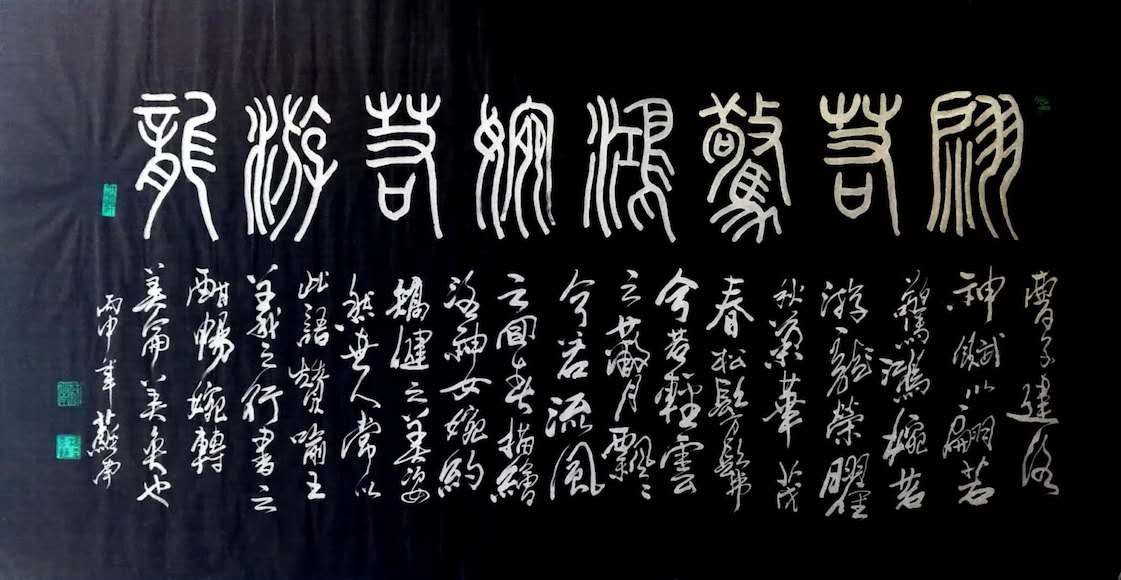 翩若驚鴻婉若游龍
曹子建洛
神賦以翩若
驚鴻婉若
游龍榮曜
秋菊華茂
春松髣髴
兮若輕雲
之蔽月飄飄
兮若流風
之回雪描繪
洛神女婉約
矯健之美姿
然世人常以
此語贊喻王
羲之行書之
酣暢婉轉
美侖美奐也
丙申年蘇